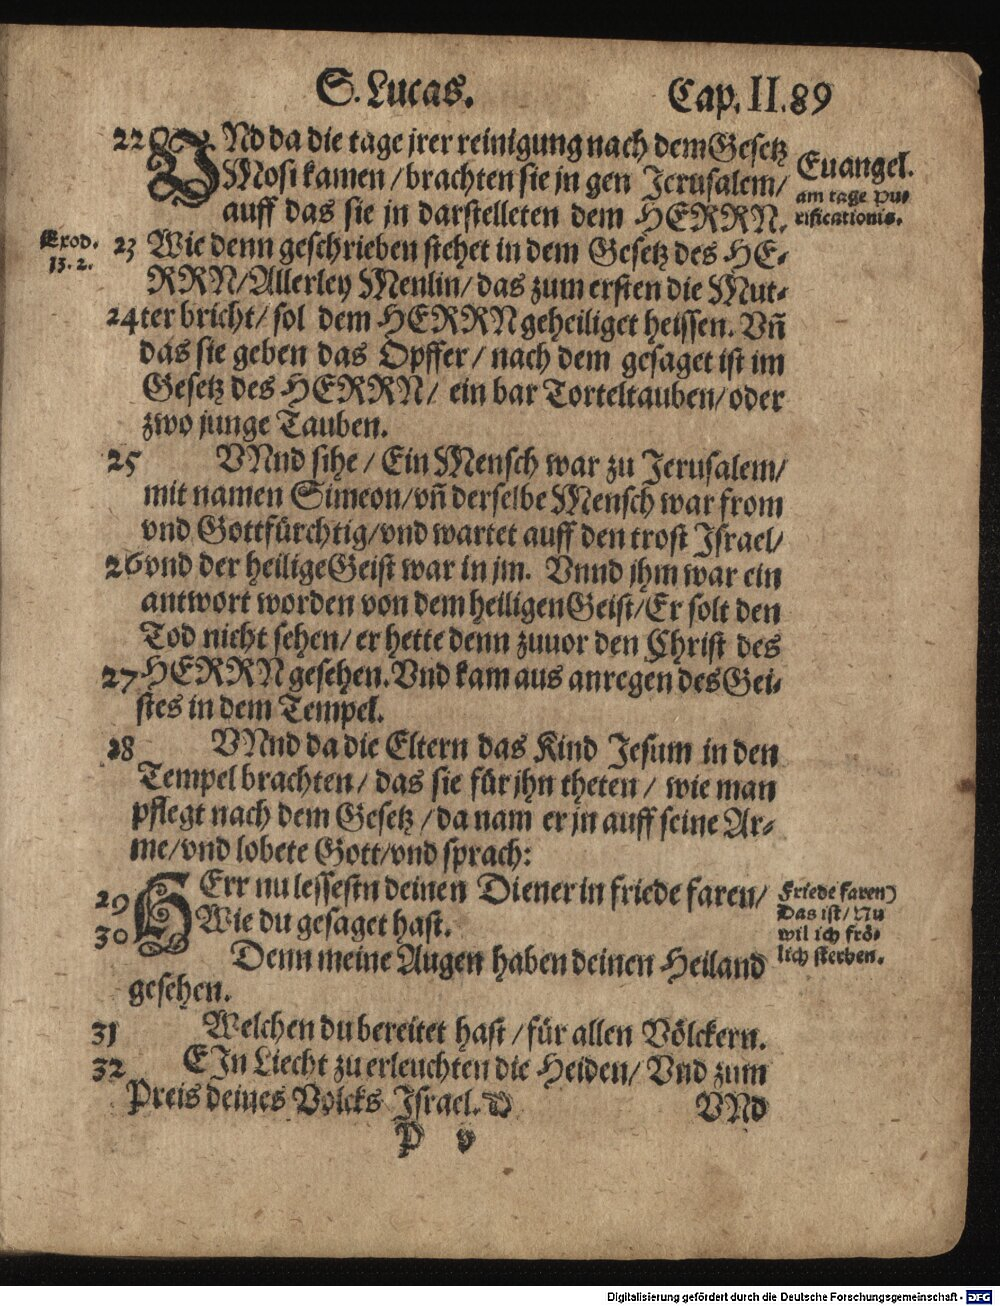 S. Lucas. Cap. II. 89
22 VNd da die tage jrer reinigung nach dem Gesetz
Mosi kamen / brachten sie jn gen Jerusalem /
auff das sie jn darstelleten dem HERRN.
Euangel.
am tage Pu⸗
rificationis.
Exod.
13. 2.
23 Wie denn geschrieben stehet in dem Gesetz des HE⸗
RRN / Allerley Menlin / das zum ersten die Mut⸗
24 ter bricht / sol dem HERRN geheiliget heissen. Vn̄
das sie geben das Opffer / nach dem gesaget ist im
Gesetz des HERRN / ein bar Torteltauben / oder
zwo junge Tauben.
25 VNnd sihe / Ein Mensch war zu Jerusalem /
mit namen Simeon / vn̄ derselbe Mensch war from
vnd Gottfürchtig / vnd wartet auff den trost Israel /
26 vnd der heilige Geist war in jm. Vnnd jhm war ein
antwort worden von dem heiligen Geist / Er solt den
Tod nicht sehen / er hette denn zuuor den Christ des
27 HERRN gesehen. Vnd kam aus anregen des Gei⸗
stes in dem Tempel.
28 VNnd da die Eltern das Kind Jesum in den
Tempel brachten / das sie für jhn theten / wie man
pflegt nach dem Gesetz / da nam er jn auff seine Ar⸗
me / vnd lobete Gott / vnd sprach:
29 HErr nu lessestn deinen Diener in friede faren /
30 Wie du gesaget hast.
Denn meine Augen haben deinen Heiland
gesehen.
Friede faren)
Das ist / Nu
wil ich frö⸗
lich sterben.
31 Welchen du bereitet hast / für allen Völckern.
32 EIn Liecht zu erleuchten die Heiden / Vnd zum
Preis deines Volcks Israel. VNd
P v
Digitalisierung gefördert durch die Deutsche Forschungsgemeinschaft - DFG